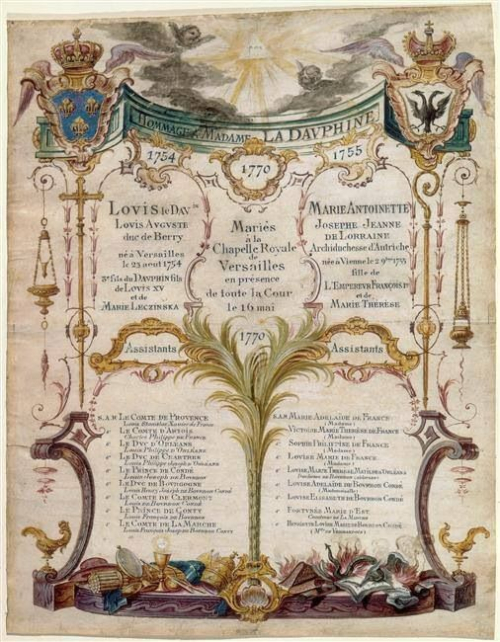 Hommage à Madame LA DAVPHINE
1754
1770
1755
LOVIS le DAVin
LOVIS AVGVSTE
duc de Berry
né à Versailles
le 23 aout 1754
3e fils du DAVPHIN fils
de LOVIS XV
et de
MARIE LECZINSKA
Mariés
à la
Chapelle Royale
de
Versailles
en présence
de toute la Cour
le 16 mai
1770
MARIE ANTOINETTE
JOSEPHE JEANNE
DE LORRAINE
Archiduchesse d'Autriche
née à Vienne le 2 9bre 1755
fille de
L'EMPEREVR FRANÇOIS Ier
et de
MARIE THERÈSE
Assistants
S.A.R LE COMTE DE PROVENCE
Louis Stanislas Xavier de France
LE COMTE D'ARTOIS
Charles Philippe de France
LE DVC D'ORLÉANS
Louis Philippe d'Orléans
LE DVC DE CHARTRES
Louis Philippe Joseph d'Orléans
LE PRINCE DE CONDÉ
Louis Joseph de Bourbon
LE DVC DE BOVRBON
Louis Henry Joseph de Bourbon Condé
LE COMTE DE CLERMONT
Louis de Bourbon Condé
LE PRINCE DE CONTY
Louis François de Bourbon
LE COMTE DE LA MARCHE
Louis François Joseph de Bourbon Conty
Assistants
S.A.R MARIE ADELAÏDE DE FRANCE
(Madame)
VICTOIRE MARIE THÉRÈSE DE FRANCE
(Madame)
SOPHIE PHILIPPINE DE FRANCE
(Madame)
LOVISE MARIE DE FRANCE
(Madame)
LOVISE MARIE THERESE MATHILDE D'ORLEANS
Duchesse de Bourbon
LOVISE ADELAÏDE DE BOVRBON CONDÉ
(Mademoiselle)
LOVISE ELISABETH DE BOVRBON CONDÉ
FORTVNÉE MARIE D'EST
Comtesse de La Marche
HENRIETTE LOVISE MARIE DE BOVRBON CONDÉ
(Mlle de Vermandois)